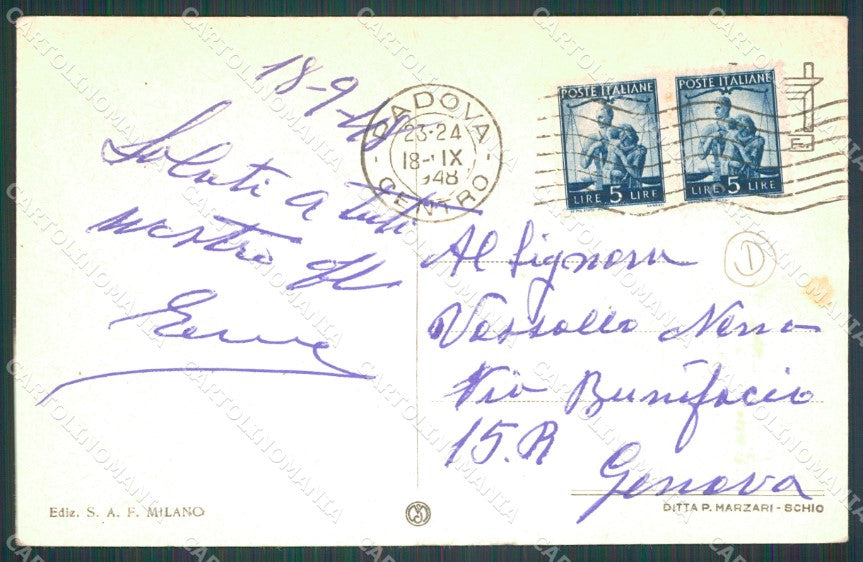 18-9-48
Saluti a tutti
Al Signora
Vassallo Nerra
Via Bunifacio
15.R
Genova
PADOVA
23-24
18-IX
948
CENTRO
POSTE ITALIANE
LIRE 5 LIRE
POSTE ITALIANE
LIRE 5 LIRE
D
Ediz. S. A. F. MILANO
DITTA P. MARZARI - SCHIO
CARTOLINOMANIA